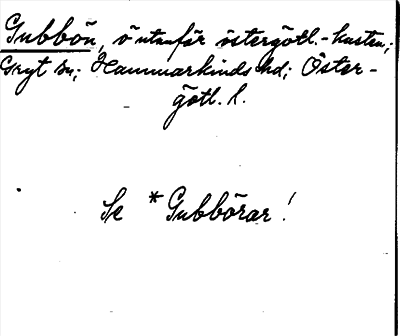 Gubbön, ö utanför östergötl.-kusten;
Gryt sn; Hammarkinds hd; Öster-
götl. l.
Se *Gubbörar!